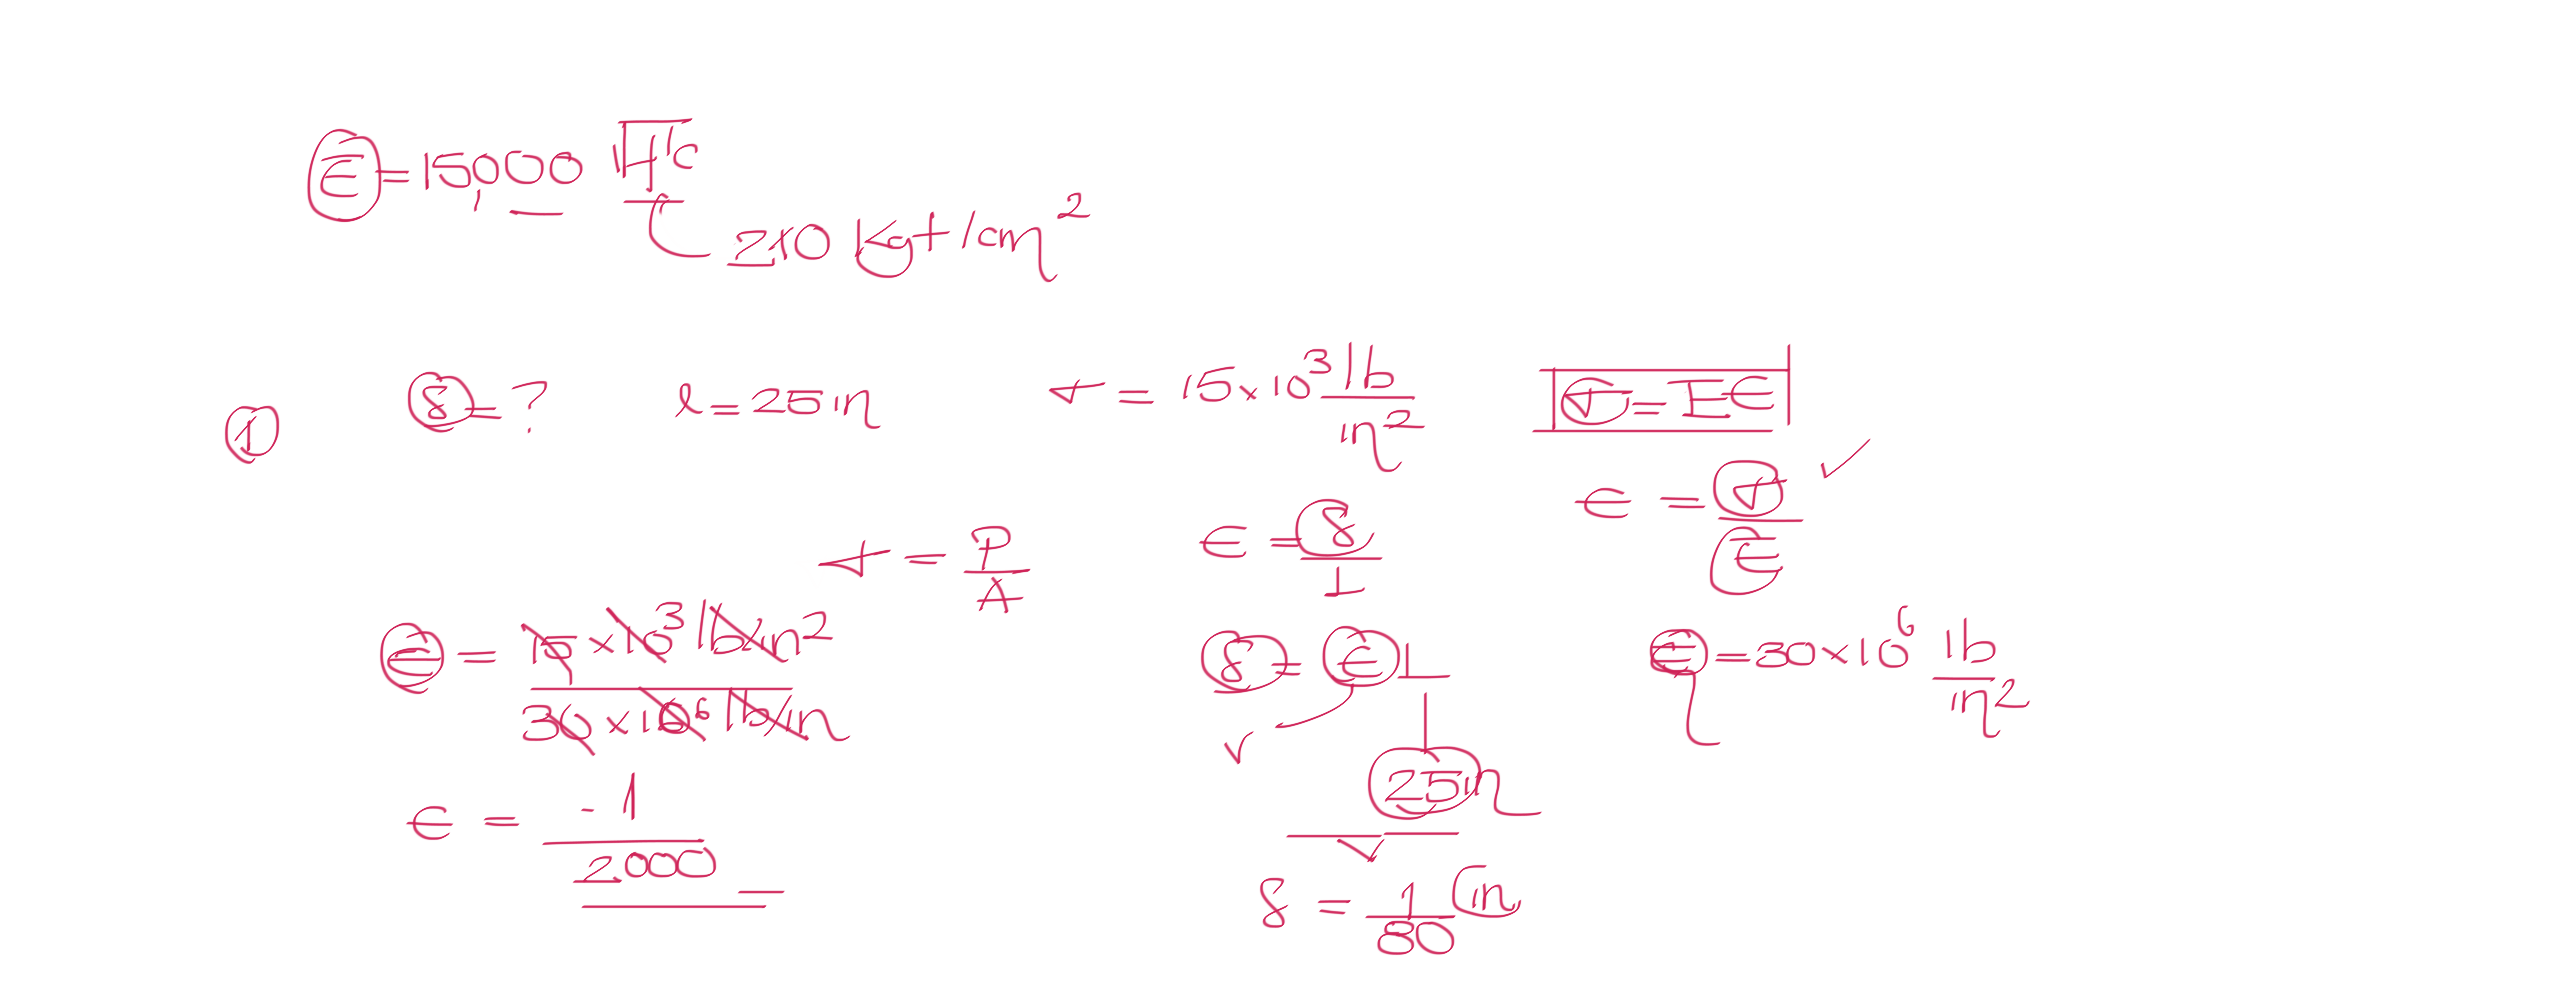 E = 15,000 √f'c
210 kgf/cm²
① δ = ? l = 25 in σ = 15×10³ lb/in² σ = Eϵ
ϵ = σ/E ✓
σ = P/A ϵ = δ/L
ϵ = 15×10³ lb/in² / 30×10⁶ lb/in δ = ϵL E = 30×10⁶ lb/in²
✓ 25 in
ϵ = 1/2000 δ = 1/80 in